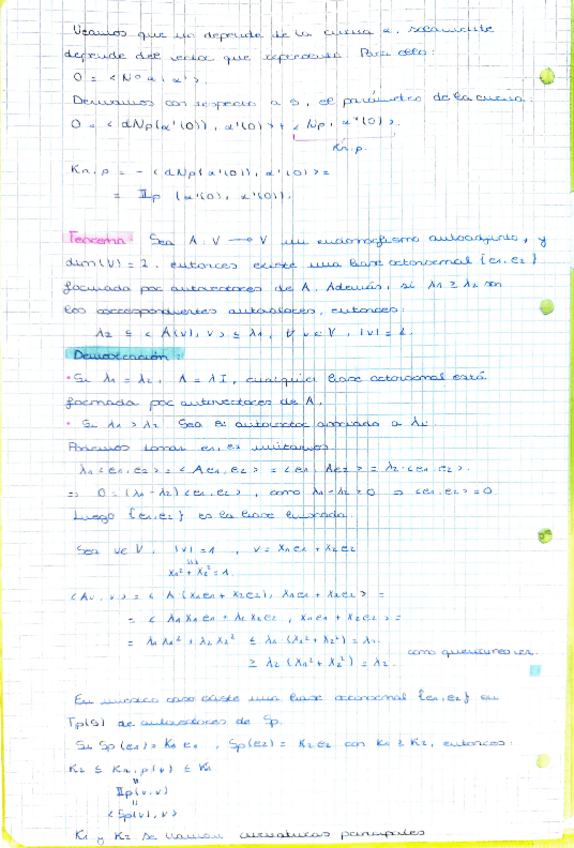 Veamos que no depende de la curva α, solamente
depende del vector que representa. Para ello:
0 = < N∘α, α' >.
Derivamos con respecto a s, el parámetro de la curva:
0 = < dNp(α'(0)), α'(0) > + < Np, α''(0) >.
Kn,p.
Kn,p = - < dNp(α'(0)), α'(0) > =
= IIp (α'(0), α'(0)).
Teorema: Sea A: V → V un endomorfismo autoadjunto, y
dim(V) = 2, entonces existe una base ortonormal {e1, e2}
formada por autovectores de A. Además, si λ1 ≥ λ2 son
los correspondientes autovalores, entonces:
λ2 ≤ < A(v), v > ≤ λ1, ∀ v ∈ V, |v| = 1.
Demostración:
• Si λ1 = λ2, A = λI, cualquier base ortonormal está
formada por autovectores de A.
• Si λ1 > λ2. Sea ei autovector asociado a λi.
Podemos tomar e1, e2 unitarios.
λ1 < e1, e2 > = < Ae1, e2 > = < e1, Ae2 > = λ2 < e1, e2 >.
⇒ 0 = (λ1 - λ2) < e1, e2 >, como λ1 - λ2 > 0 ⇒ < e1, e2 > = 0
Luego {e1, e2} es la base buscada.
Sea v ∈ V, |v| = 1, v = x1e1 + x2e2
x1² + x2² = 1.
< Av, v > = < A (x1e1 + x2e2), x1e1 + x2e2 > =
= < λ1x1e1 + λ2x2e2, x1e1 + x2e2 > =
= λ1x1² + λ2x2² ≤ λ1 (x1² + x2²) = λ1.
≥ λ2 (x1² + x2²) = λ2. como queríamos ver.
En nuestro caso existe una base ortonormal {e1, e2} en
Tp(S) de autovectores de Sp.
Si Sp(e1) = K1e1, Sp(e2) = K2e2 con K1 ≥ K2, entonces:
K2 ≤ Kn,p(v) ≤ K1
"
IIp(v,v)
"
< Sp(v), v >
K1 y K2 se llaman curvaturas principales